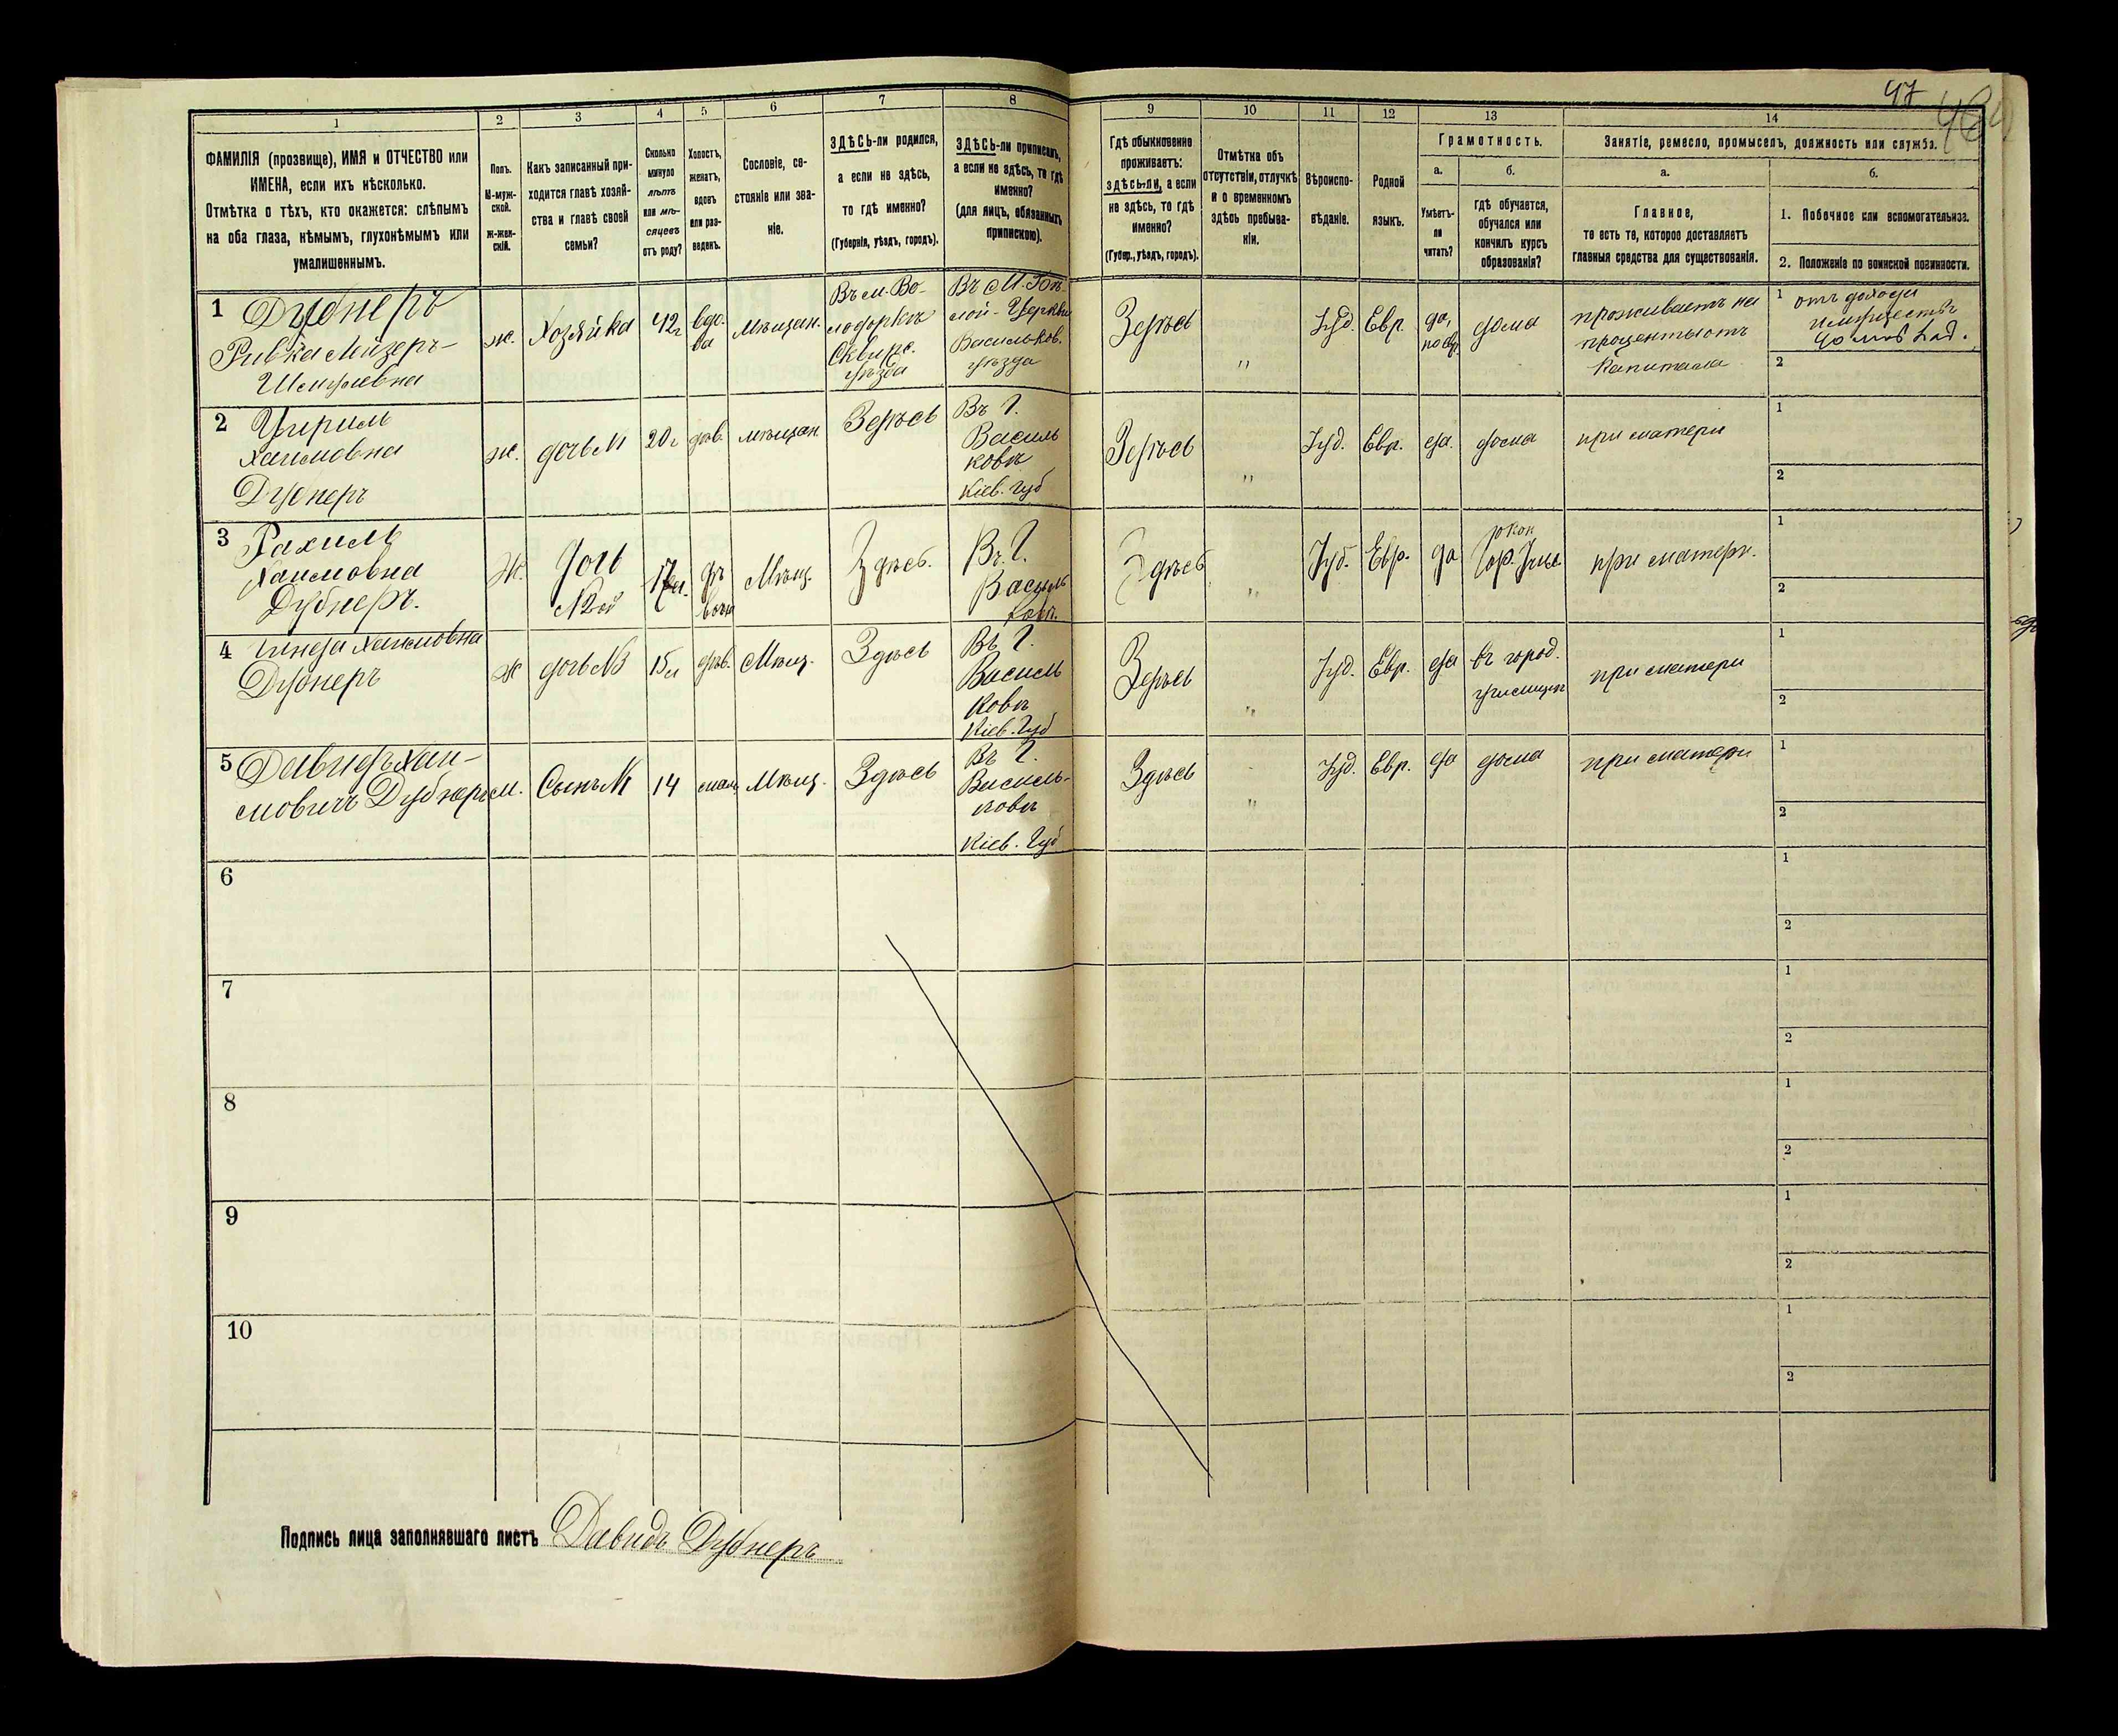 47
1 2 3 4 5 6 7 8 9 10 11 12 13 14
ФАМИЛІЯ (прозвище), ИМЯ и ОТЧЕСТВО или
ИМЕНА, если ихъ нѣсколько.
Отмѣтка о тѣхъ, кто окажется: слѣпымъ
на оба глаза, нѣмымъ, глухонѣмымъ или
умалишеннымъ.
Полъ.
М-муж-
ской.
Ж-жен-
скій.
Какъ записанный при-
ходится главѣ хозяй-
ства и главѣ своей
семьи?
Сколько
минуло
лѣтъ
или мѣ-
сяцевъ
отъ роду?
Холостъ,
женатъ,
вдовъ
или раз-
веденъ.
Сословіе, со-
стояніе или зва-
ніе.
ЗДѢСЬ-ли родился,
а если не здѣсь,
то гдѣ именно?
(Губернія, уѣздъ, городъ).
ЗДѢСЬ-ли приписанъ,
а если не здѣсь, то гдѣ
именно?
(для лицъ, обязанныхъ
припискою).
Гдѣ обыкновенно
проживаетъ:
здѣсь-ли, а если
не здѣсь, то гдѣ
именно?
(Губер., уѣздъ, городъ).
Отмѣтка объ
отсутствіи, отлучкѣ
и о временномъ
здѣсь пребыва-
ніи.
Вѣроиспо-
вѣданіе.
Родной
языкъ.
Грамотность.
а.
Умѣетъ-
ли
читать?
б.
Гдѣ обучается,
обучался или
кончилъ курсъ
образованія?
Занятіе, ремесло, промыселъ, должность или служба.
а.
Главное,
то есть то, которое доставляетъ
главныя средства для существованія.
б.
1. Побочное или вспомогательное.
2. Положеніе по воинской повинности.
1 Дубнеръ
Ривка Мизеръ-
Шмулевна
ж.
Хозяйка
42 г
вдо-
ва
мѣщан.
Въ м. Во-
лодоркѣ
Сквирс.
уѣзда
Церкви
Васильков.
уѣзда
Здѣсь
"
Іуд.
Евр.
да,
дома
проживаетъ на
проценты отъ
капитала
1 отъ
2
2
Хаимовна
Дубнеръ
ж.
дочь №1
20 г
дѣв.
мѣщан.
Здѣсь
Въ г.
Василь
ковѣ
Кіев. Губ
Здѣсь
"
Іуд.
Евр.
да.
дома
при матери
1
2
3 Рахиль
Хаимовна
Дубнеръ.
Ж.
дочь
17 л.
дѣ
Мѣщ.
Здѣсь.
Въ г.
Василь
ковѣ.
Здѣсь
"
Іуд.
Евр.
да
при матери.
1
2
4 Хаимовна
Дубнеръ
ж
дочь №1
15 л
дѣв.
Мѣщ.
Здѣсь
Въ г.
Василь
ковѣ
Кіев. Губ
Здѣсь
"
Іуд.
Евр.
да
въ город.
училищѣ
при матери
1
2
5 Давидъ Хаи-
мовичъ Дубнеръ
м.
Сынъ №1
14
Мѣщ.
Здѣсь
Въ г.
Василь-
ковѣ
Кіев. Губ
Здѣсь
"
Іуд.
Евр.
да
дома
при матери
1
2
6
1
2
7
1
2
8
1
2
9
1
2
10
1
2
Подпись лица заполнявшаго листъ Давидъ Дубнеръ